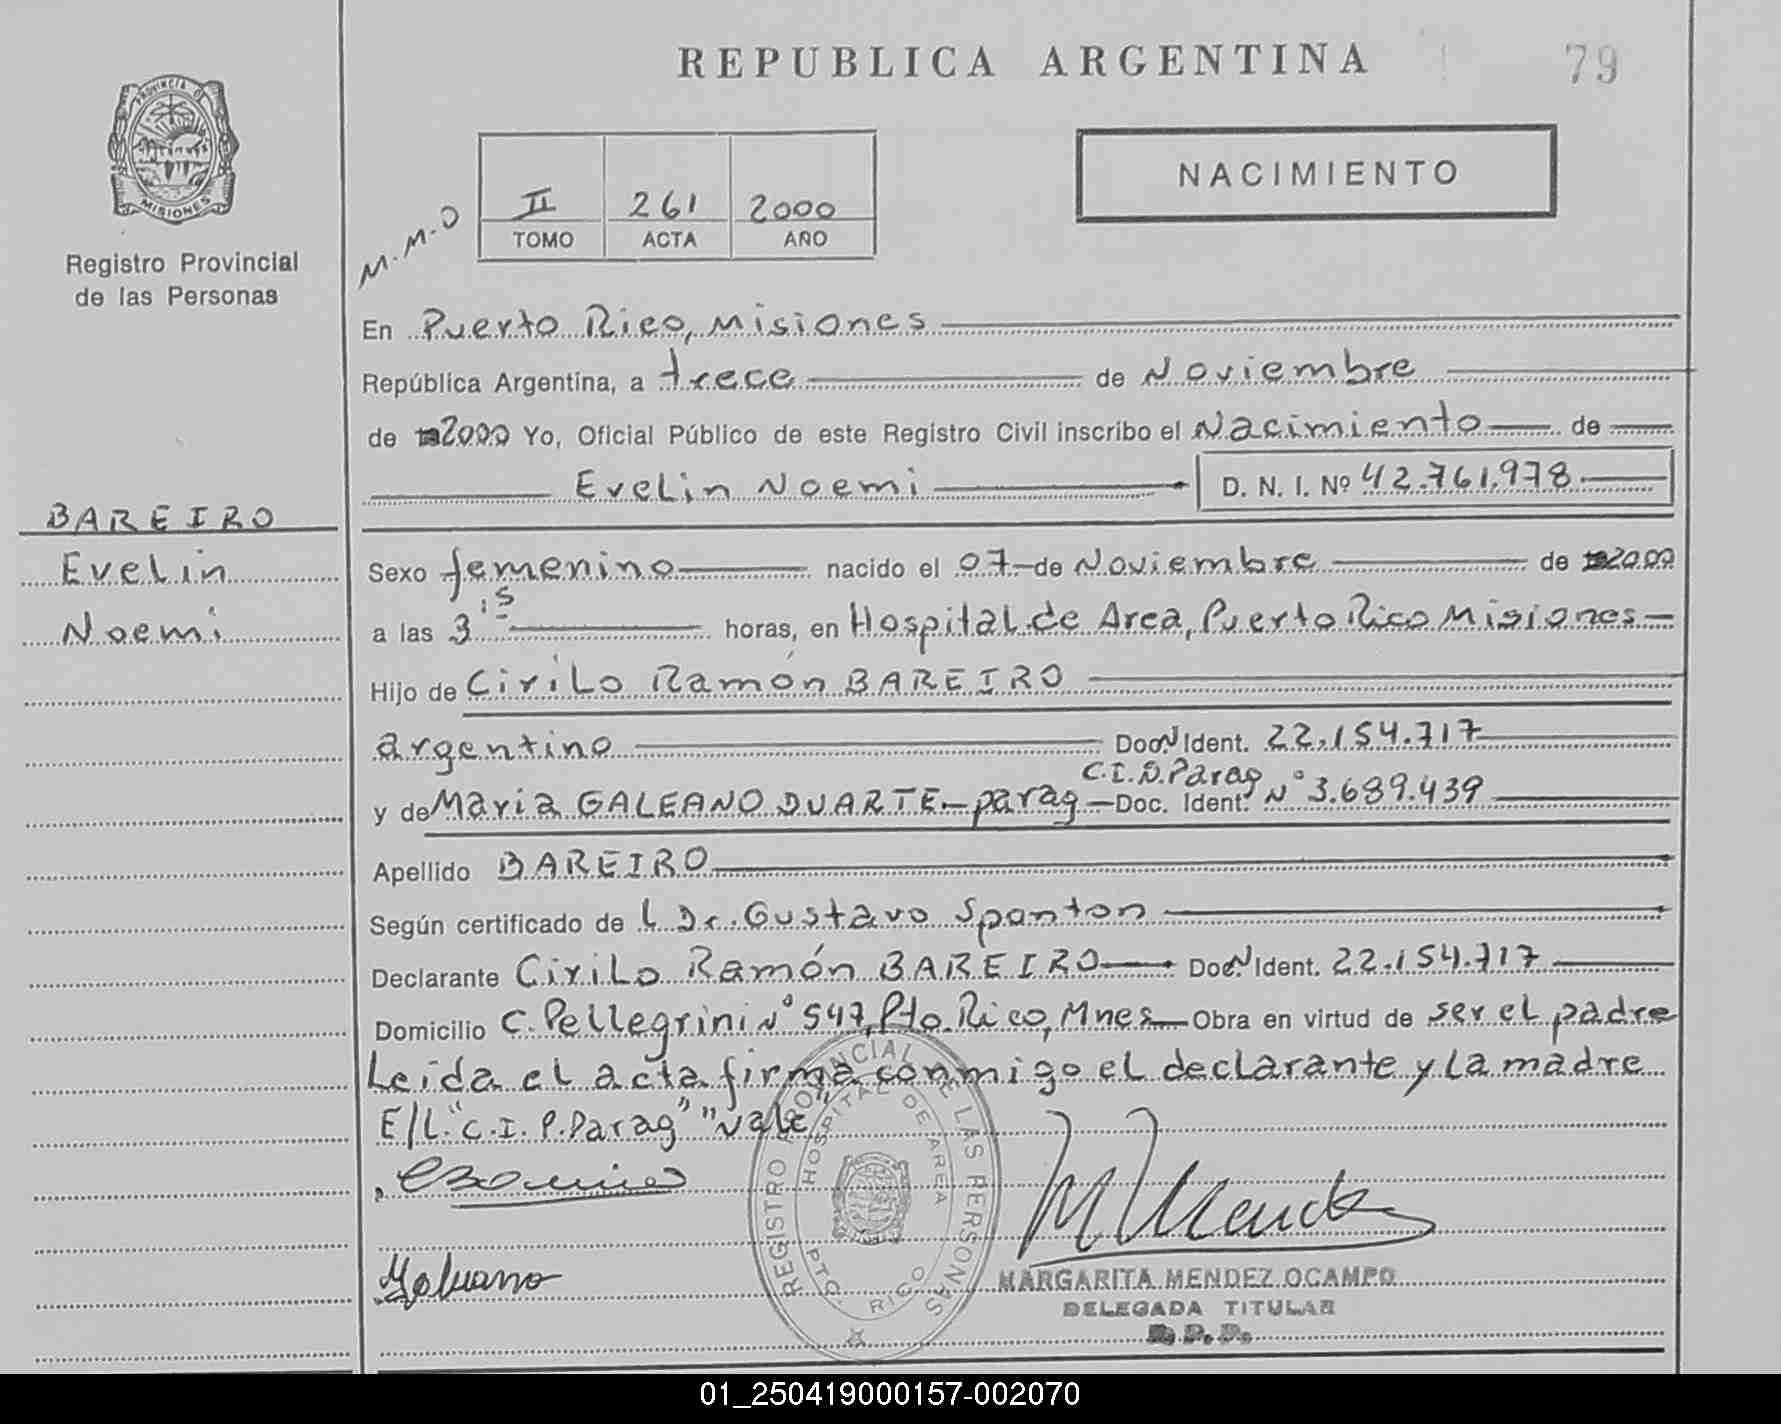 REPUBLICA ARGENTINA
79
PROVINCIA D
MISIONES
Registro Provincial
de las Personas
M.M.O
II 261 2000
TOMO ACTA AÑO
NACIMIENTO
En Puerto Rico, Misiones
República Argentina, a trece de Noviembre
de 2000 Yo, Oficial Público de este Registro Civil inscribo el Nacimiento de
Evelin Noemi D. N. I. Nº 42.761.978
BAREIRO
Evelin
Noemi
Sexo femenino nacido el 07 de Noviembre de 2000
a las 3 15 horas, en Hospital de Area, Puerto Rico Misiones
Hijo de Cirilo Ramón BAREIRO
argentino Doc. N Ident. 22.154.717
C.I.P.Parag
y de Maria GALEANO DUARTE - parag - Doc. Ident. Nº 3.689.439
Apellido BAREIRO
Según certificado de l Dr. Gustavo Spanton
Declarante Cirilo Ramón BAREIRO Doc. N Ident. 22.154.717
Domicilio C. Pellegrini Nº 547, Pto. Rico, Mnes Obra en virtud de ser el padre
Leida el acta firma conmigo el declarante y la madre
E/L. "C.I.P.Parag" "vale"
REGISTRO PROVINCIAL DE LAS PERSONAS
HOSPITAL DE AREA
PTO. RICO
Galeano
MARGARITA MENDEZ OCAMPO
DELEGADA TITULAR
01_250419000157-002070